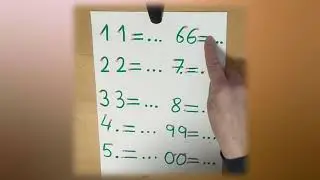 11=... 66=...
22=... 7.=...
33=... 8=...
4.=... 99=...
5.=... 00=...